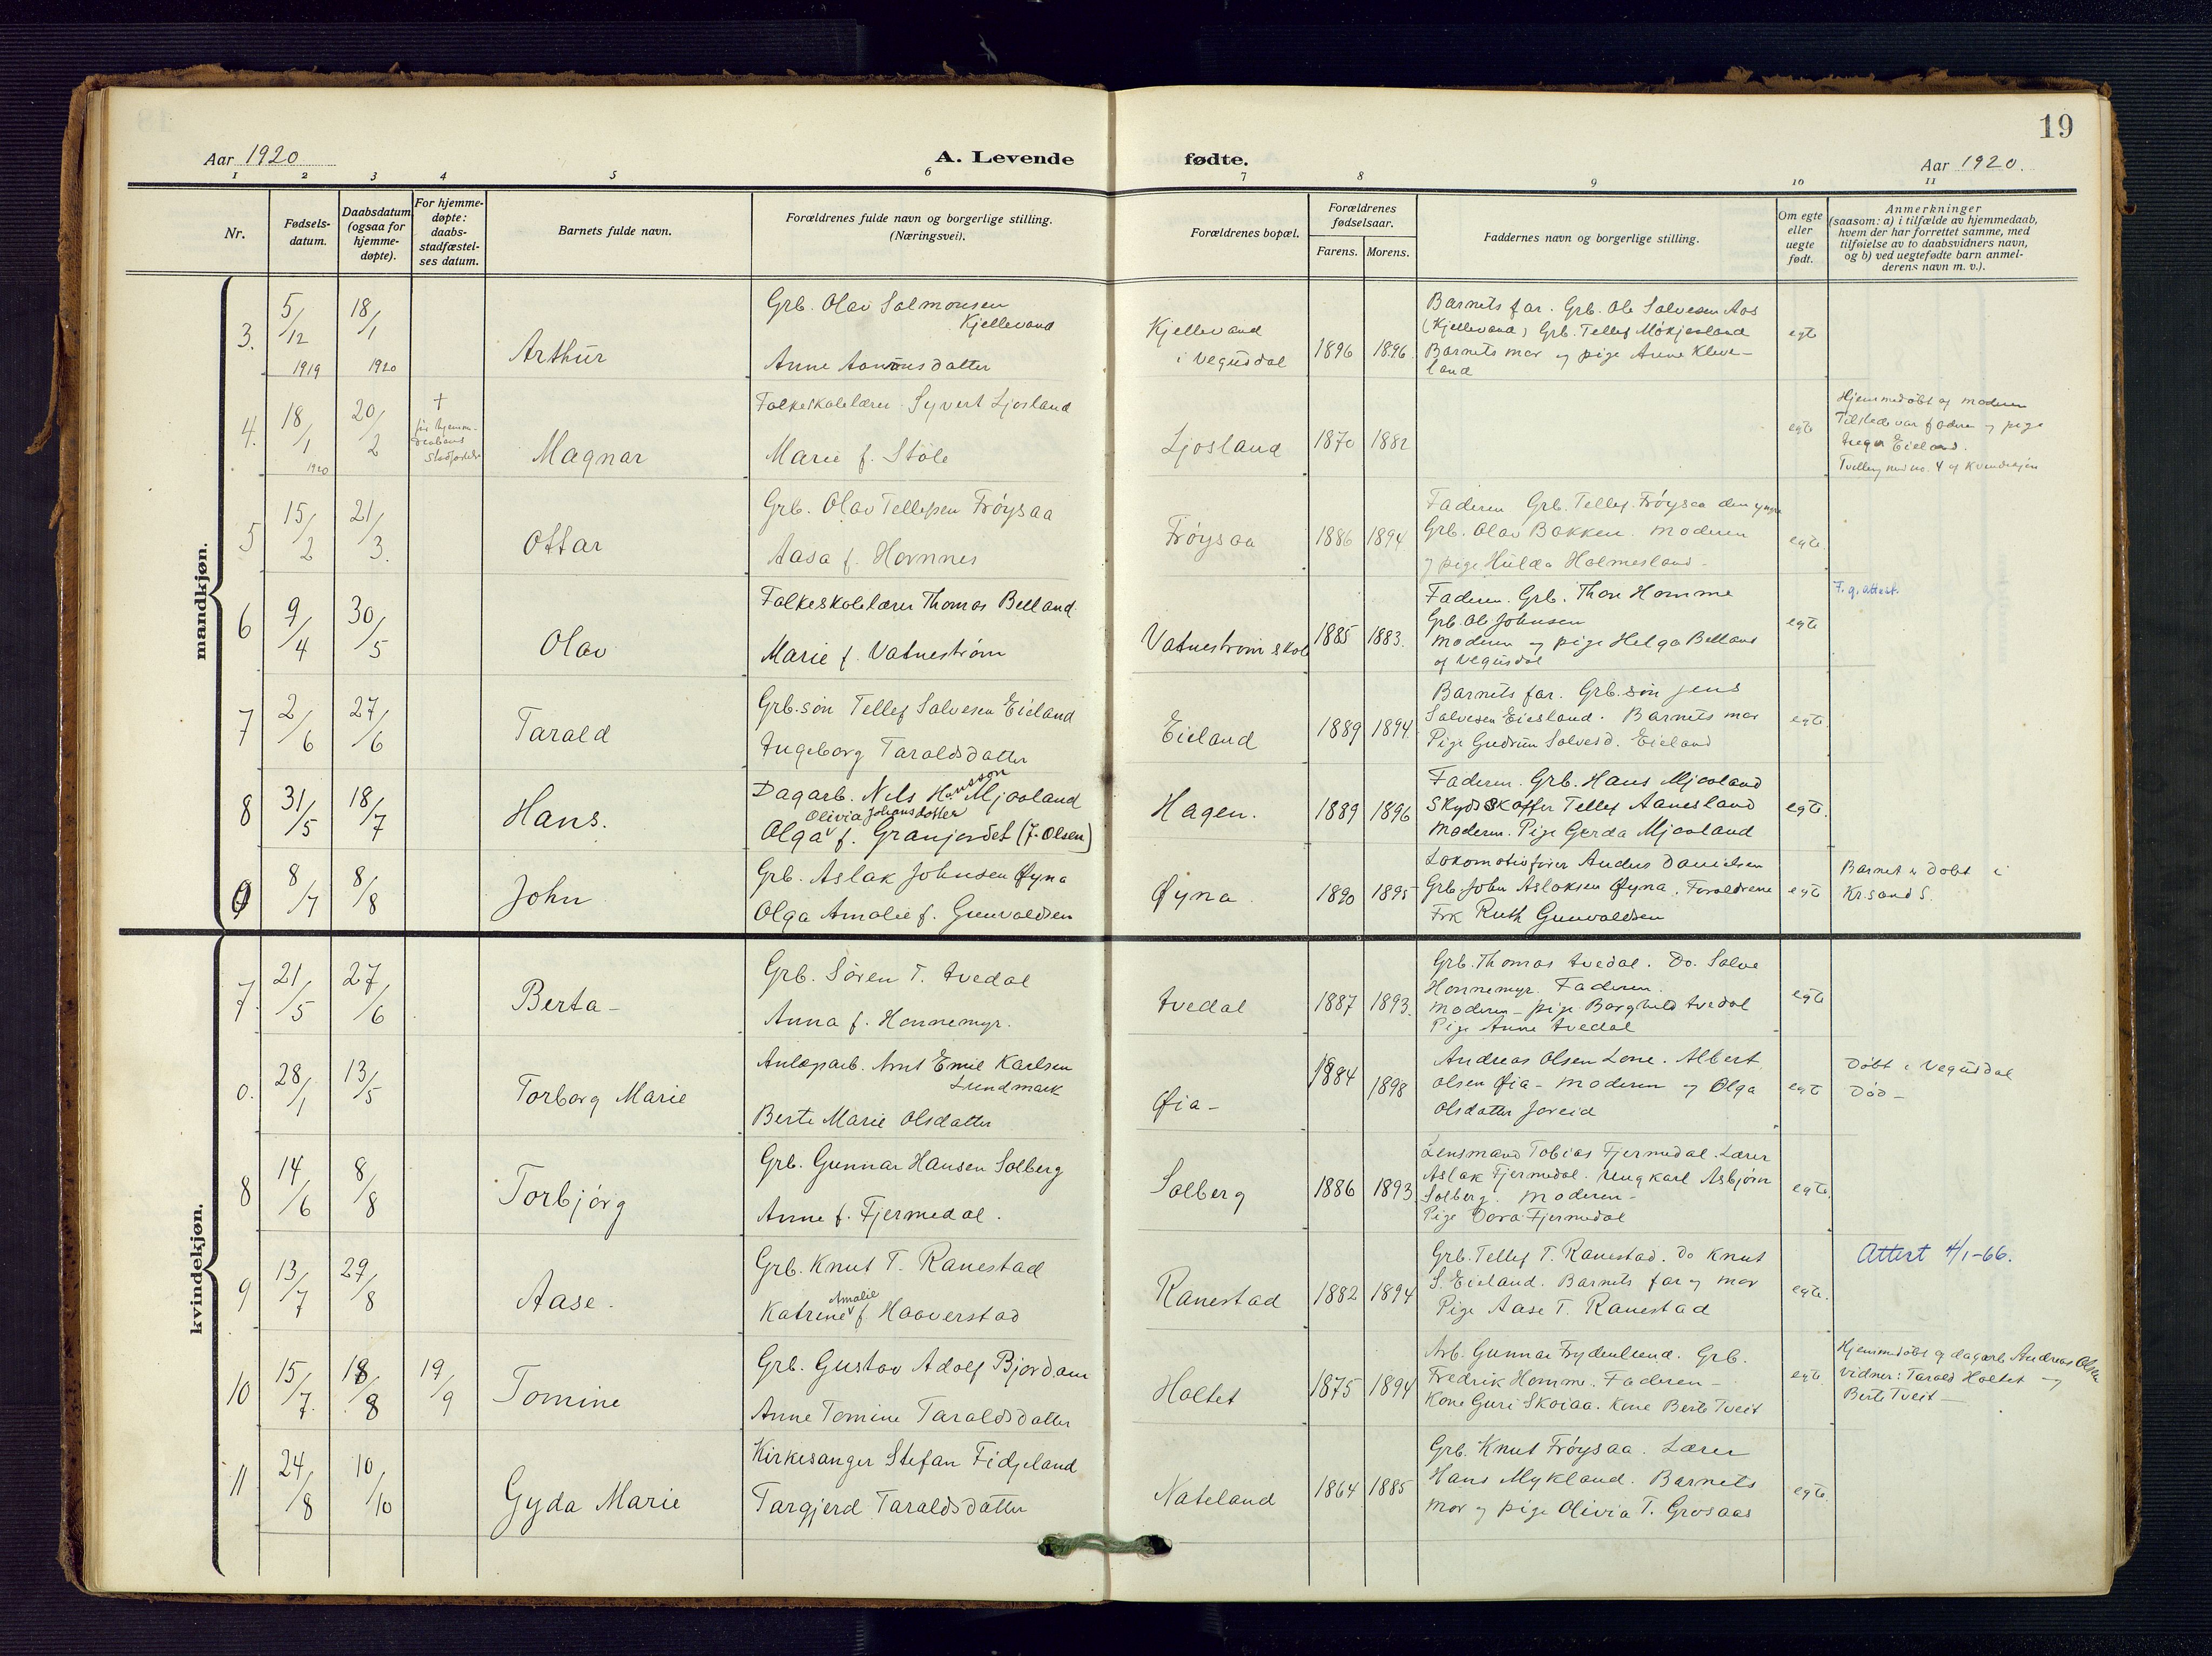 19
Aar 1920
A. Levende
fødte.
Aar 1920.
1 2 3 4 5 6 7 8 9 10 11
Nr.
Fødsels-
datum.
Daabsdatum
(ogsaa for
hjemme-
døpte).
For hjemme-
døpte:
daabs-
stadfæstel-
ses datum.
Barnets fulde navn.
Forældrenes fulde navn og borgerlige stilling.
(Næringsvei).
Forældrenes bopæl.
Forældrenes
fødselsaar.
Farens. Morens.
Faddernes navn og borgerlige stilling.
Om egte
eller
uegte
født.
Anmerkninger
(saasom: a) i tilfælde av hjemmedaab,
hvem der har forrettet samme, med
tilføielse av to daabsvidners navn,
og b) ved uegtefødte barn anmel-
derens navn m. v.).
mandkjøn.
3.
5/12
1919
18/1
1920
Arthur
Grb. Olav Salmonsen
Kjellevand
Anne Aanonsdatter
Kjellevand
i Vegusdal
1896 1896.
Barnets far. Grb. Ole Salvesen Aas
(Kjellevand) Grb. Tellef Mokjasland
Barnets mor og pige Anne Kleve-
land
egte
4.
18/1
1920
20/2
†
før hjemme-
daabens
Magnar
Folkeskolelærer Syvert Ljosland
Marie f. Støle
Ljosland
1870 1882
egte
Hjemmedøbt af moderen
Tilstede var faderen og pige
Inga Eieland.
Tvilling med no. 4 af kvindekjøn
5
15/2
21/3.
Ottar
Grb. Olav Tellefsen Frøysaa
Aasa f. Hornnes
Frøysaa
1886 1894
Faderen Grb. Tellef Frøysaa den yngre
Grb. Olav Bakken. Moderen
og pige Hulda Holmesland.
egte.
6
9/4
30/5
Olav
Folkeskolelærer Thomas Belland
Marie f. Vatnestrøm
Vatnestrøm skole
1885 1883.
Faderen. Grb. Thor Homme
Grb. Ole Johnsen
Moderen og pige Helga Belland
af Vegusdal
egte
F.g. attest.
7
2/6
27/6
Tarald
Grb.søn Tellef Salvesen Eieland
Ingeborg Taraldsdatter
Eieland
1889 1894.
Barnets far. Grb.søn Jens
Salvesen Eiesland. Barnets mor
Pige Gudrun Salvesd. Eieland
egte.
8
31/5
18/7
Hans.
Dagarb. Nils Hansson Mjaaland
Olivia Johansdotter
Olga f. Granjordet (f. Olsen)
Hagen.
1889 1896
Faderen. Grb. Hans Mjaaland
Skydsskaffer Tellef Aanesland
Moderen. Pige Gerda Mjaaland
egte.
0
8/7
8/8
John
Grb. Aslak Johnsen Øyna
Olga Amalie f. Gunvaldsen
Øyna.
1890 1895
Lokomotivfører Anders Danielsen
Grb John Aslaksen Øyna. Forældrene
Frk Ruth Gunvaldsen
egte
Barnet er døbt i
Kr.sand S.
kvindekjøn.
7.
21/5
27/6
Berta-
Grb. Søren T. Tvedal
Anna f. Honnemyr.
Tvedal
1887 1893.
Grb. Thomas Tvedal. Do. Salve
Honnemyr. Faderen.
Moderen- pige Borghild Tvedal
Pige Anne Tvedal
egte
0.
28/1
13/5
Torborg Marie
Anlægsarb. Arnt Emil Karlsen
Lundmark
Berte Marie Olsdatter
Øia-
1884
1898
Andreas Olsen Lone. Albert
Olsen Øia- Moderen og Olga
Olsdatter Joreid
egte
Døbt i Vegusdal
Død-
8
14/6
8/8
Torbjørg
Grb. Gunnar Hansen Solberg
Anne f. Fjermedal.
Solberg
1886 1893.
Lensmand Tobias Fjermedal. Lærer
Aslak Fjermedal. Ungkarl Asbjørn
Solberg. Moderen-
Pige Dora Fjermedal
egte.
9
13/7
29/8
Aase.
Grb. Knut T. Ranestad
Amalie
Katrine f. Haaverstad
Ranestad
1882 1894
Grb. Tellef T. Ranestad. Do Knut
S. Eieland. Barnets far og mor
Pige Aase T. Ranestad
egte.
Attest 4/1-66.
10
15/7.
18/8
19/9
Tomine
Grb. Gustav Adolf Bjordam
Anne Tomine Taraldsdatter
Holtet
1875 1894
Arb. Gunnar Frydenlund. Grb.
Fredrik Homme. Faderen-
Kone Guri Skoiaa. Kone Berte Tveit
egte.
Hjemmedøbt af dagarb Andreas Olsen
Vidner: Tarald Holtet og
Berte Tveit-
11
24/8
10/10
Gyda Marie
Kirkesanger Stefan Fidjeland
Targjerd Taraldsdatter
Nateland
1864 1885
Grb. Knut Frøysaa. Lærer
Hans Mykland. Barnets
mor og pige Olivia T. Grosaas
egte.